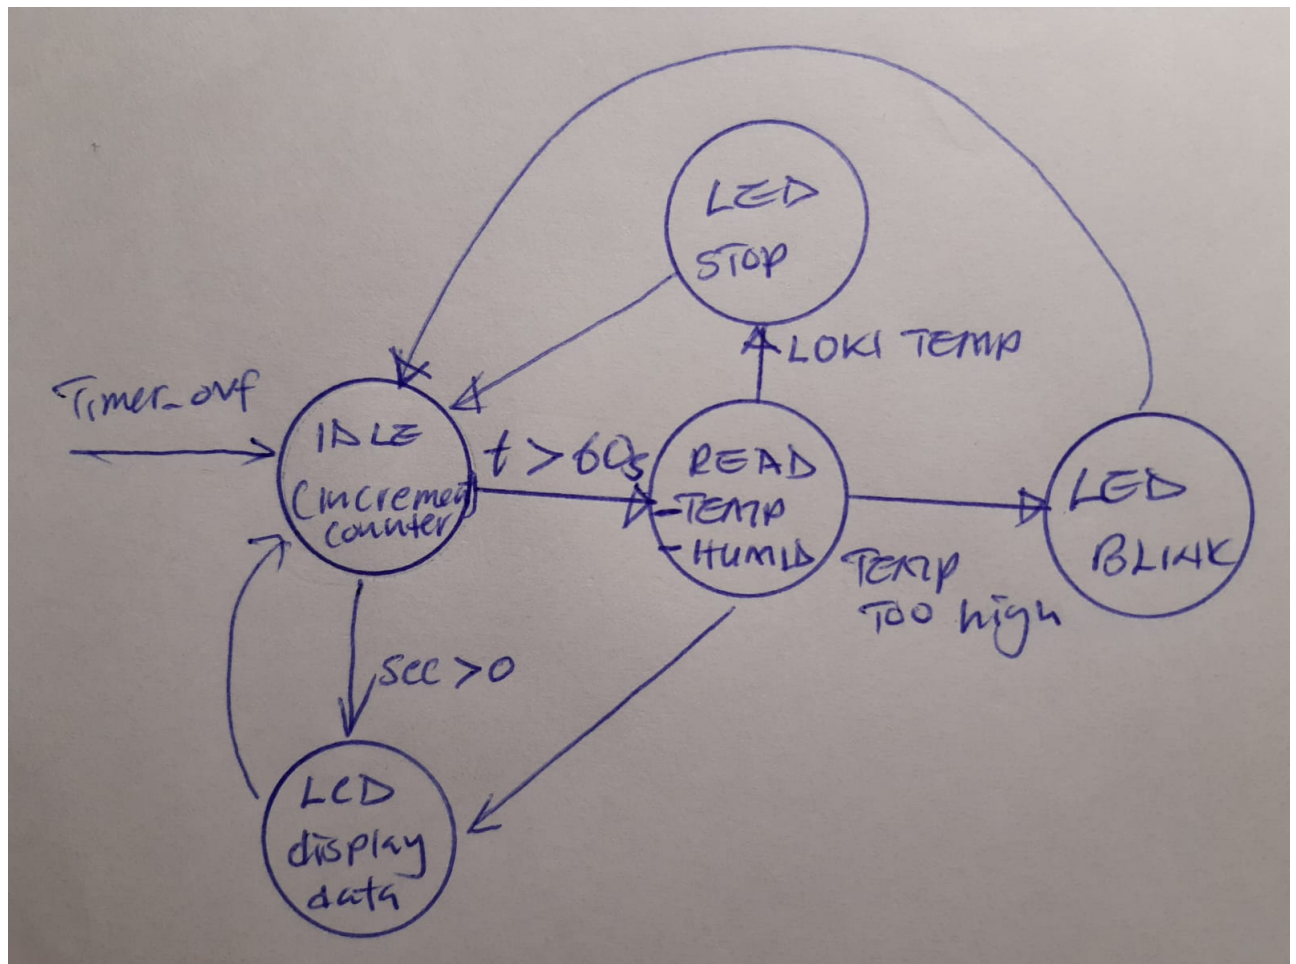 LED
STOP
LOKI TEMP
Timer_ovf
IDLE
(increment
counter)
t > 60s
READ
-TEMP
-HUMID
TEMP
TOO high
LED
BLINK
sec > 0
LCD
display
data